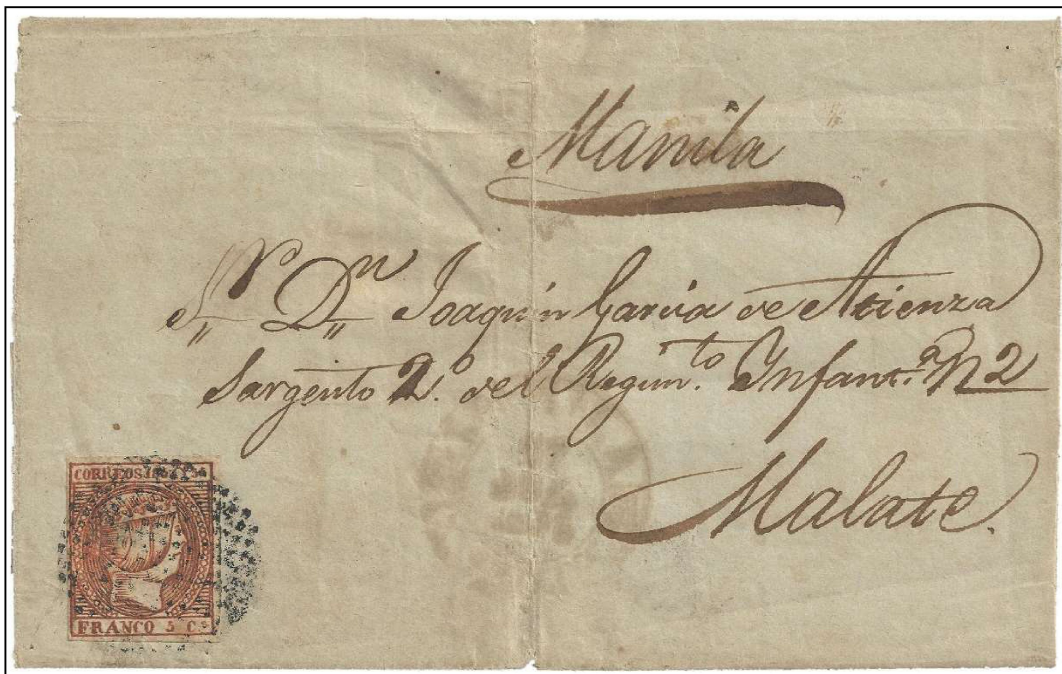 Manila
Sr. Dn. Joaquin Garcia de Atienza
Sargento 2.º del Regim.to Infant.a N 2
Malate.
CORREOS
FRANCO 5 C.s